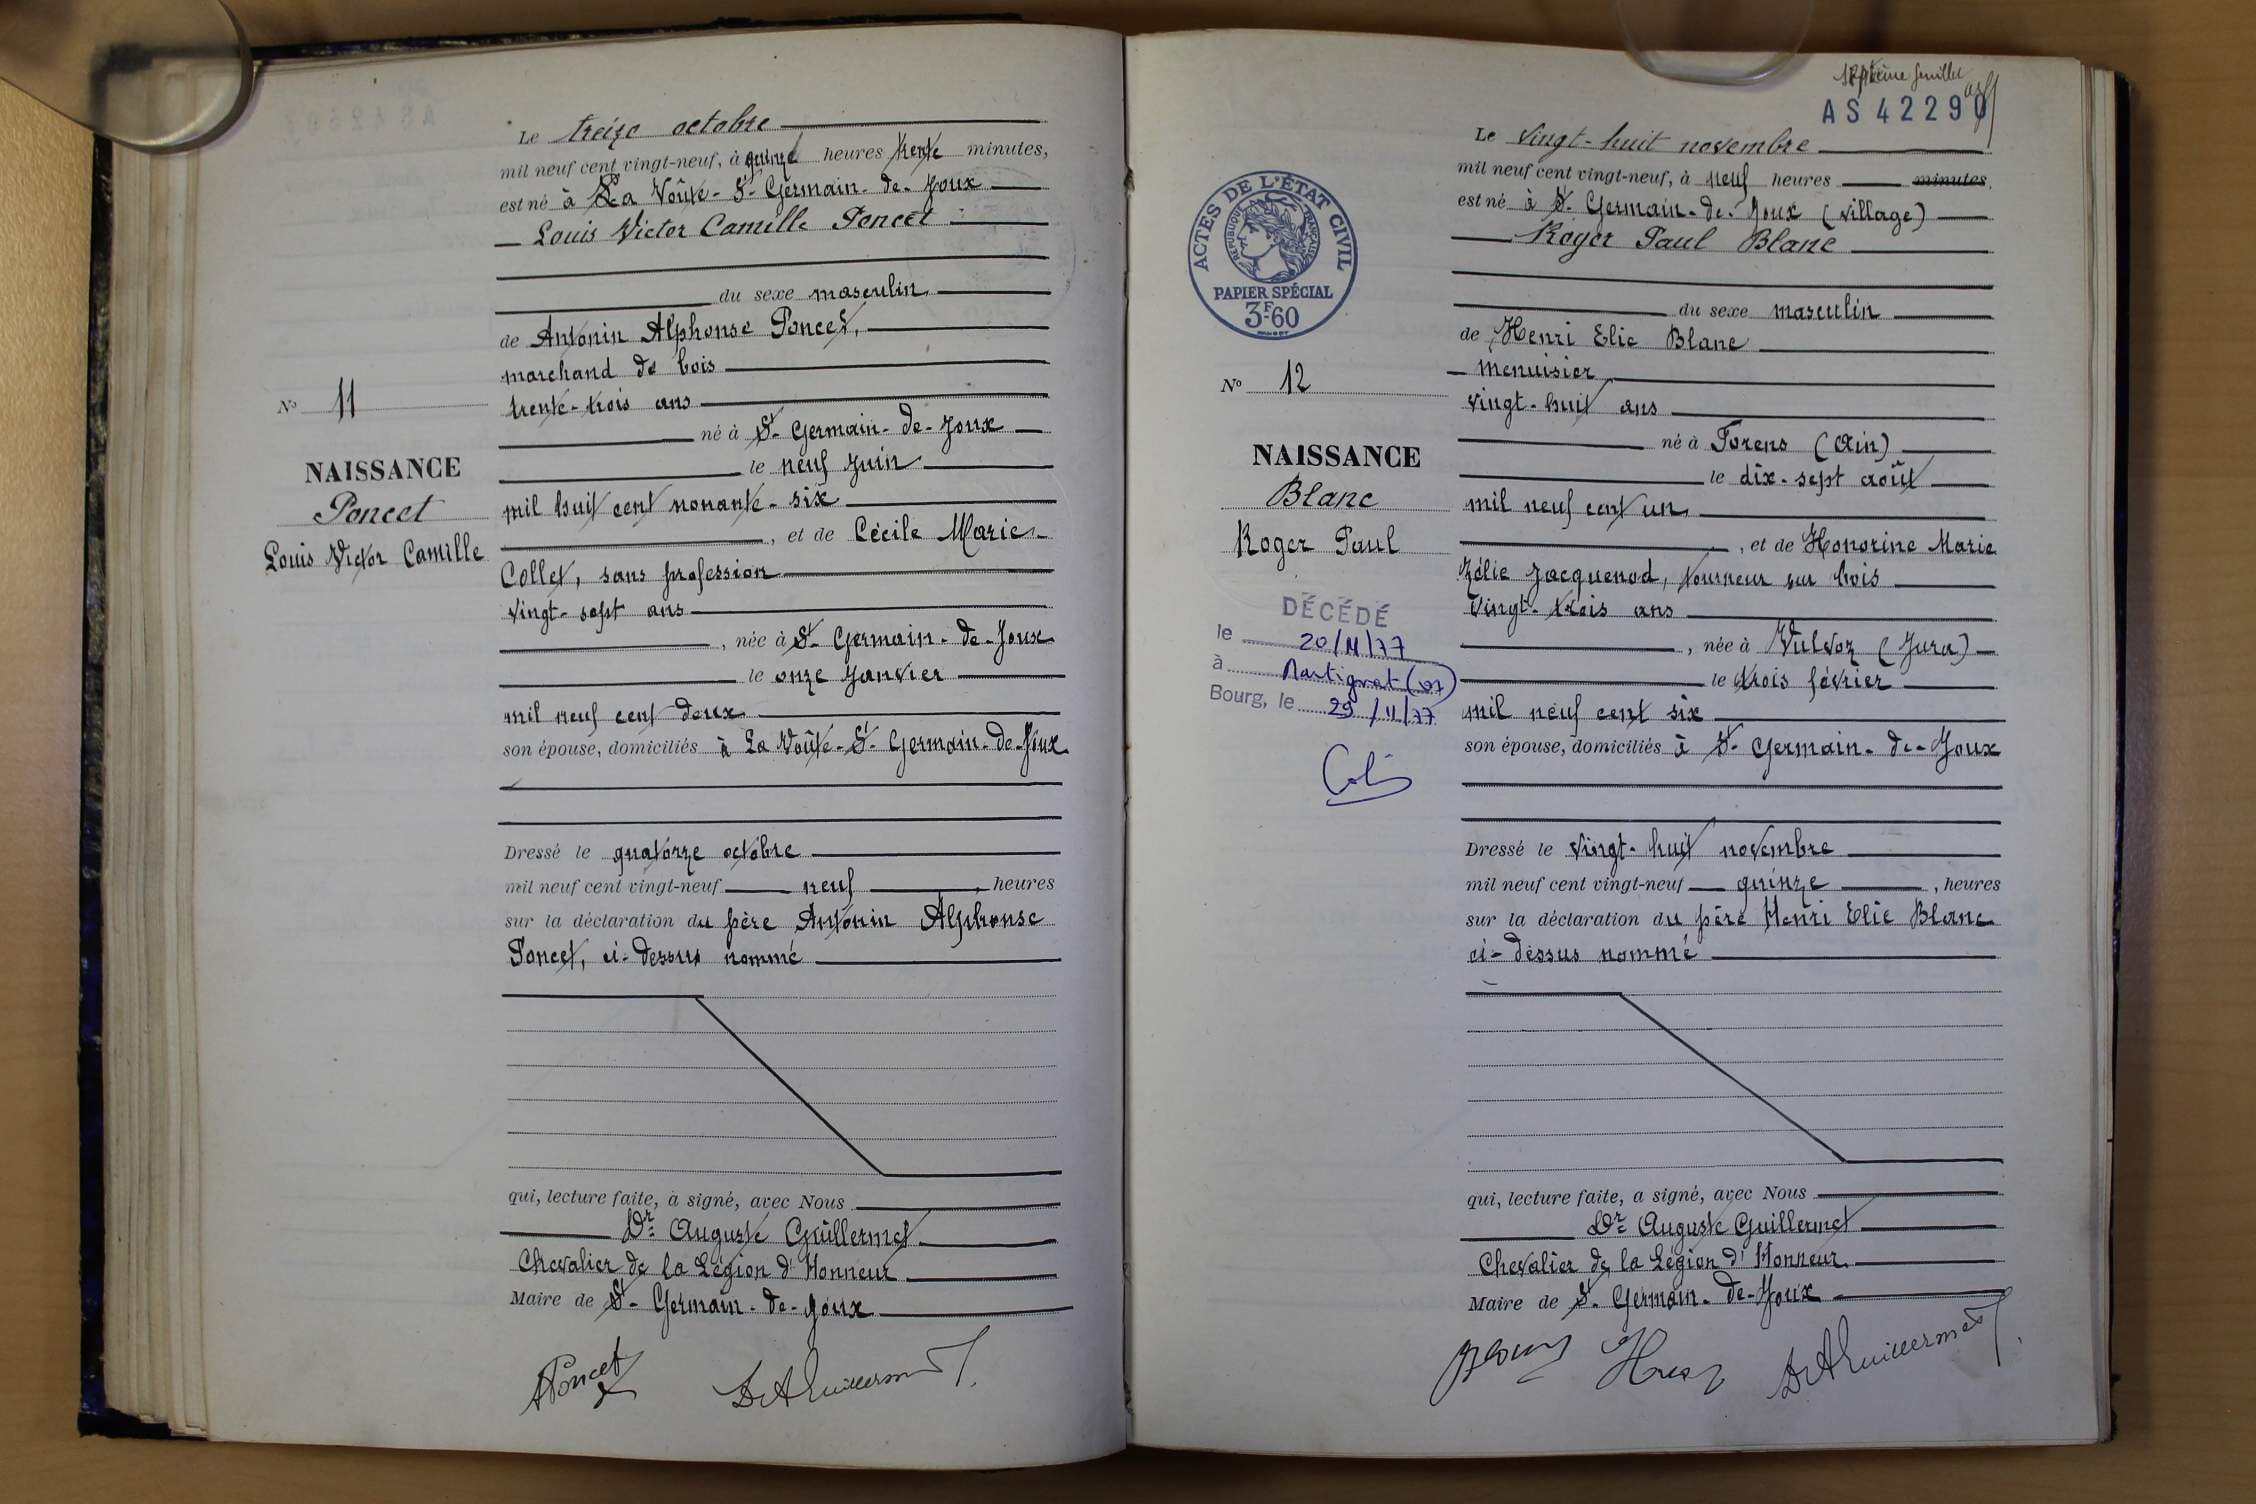 Le treize octobre
mil neuf cent vingt-neuf, à quinze heures trente minutes,
est né à La Voûte-St-Germain-de-Joux
Louis Victor Camille Poncet
du sexe masculin
de Antonin Alphonse Poncet,
marchand de bois
trente-trois ans
né à St-Germain-de-Joux
le neuf Juin
mil huit cent nonante-six
, et de Cécile Marie
Collet, sans profession
vingt-sept ans
, née à St-Germain-de-Joux
le onze Janvier
mil neuf cent deux
son épouse, domiciliés à La Voûte-St-Germain-de-Joux
Dressé le quatorze octobre
mil neuf cent vingt-neuf neuf , heures
sur la déclaration du père Antonin Alphonse
Poncet, ci-dessus nommé
qui, lecture faite, à signé, avec Nous
Dr Auguste Guillermet
Chevalier de la Légion d'Honneur
Maire de St-Germain-de-Joux
APoncet DrAGuillermet
No 11
NAISSANCE
Poncet
Louis Victor Camille
feuillet
AS 42290
Le vingt-huit novembre
mil neuf cent vingt-neuf, à neuf heures minutes,
est né à St-Germain-de-Joux (village)
Roger Paul Blanc
du sexe masculin
de Henri Elie Blanc
menuisier
vingt-huit ans
né à Forens (Ain)
le dix-sept août
mil neuf cent un
, et de Honorine Marie
Zélie Jacquenod, tourneur sur bois
vingt-trois ans
, née à Vulvoz (Jura)
le trois février
mil neuf cent six
son épouse, domiciliés à St-Germain-de-Joux
Dressé le vingt-huit novembre
mil neuf cent vingt-neuf quinze , heures
sur la déclaration du père Henri Elie Blanc
ci-dessus nommé
qui, lecture faite, a signé, avec Nous
Dr Auguste Guillermet
Chevalier de la Légion d'Honneur
Maire de St-Germain-de-Joux
DrAGuillermet
ACTES DE L'ÉTAT CIVIL
RÉPUBLIQUE FRANÇAISE
PAPIER SPÉCIAL
3F-60
No 12
NAISSANCE
Blanc
Roger Paul
DÉCÉDÉ
le 20/11/77
à Martignat (01)
Bourg, le 29/11/77